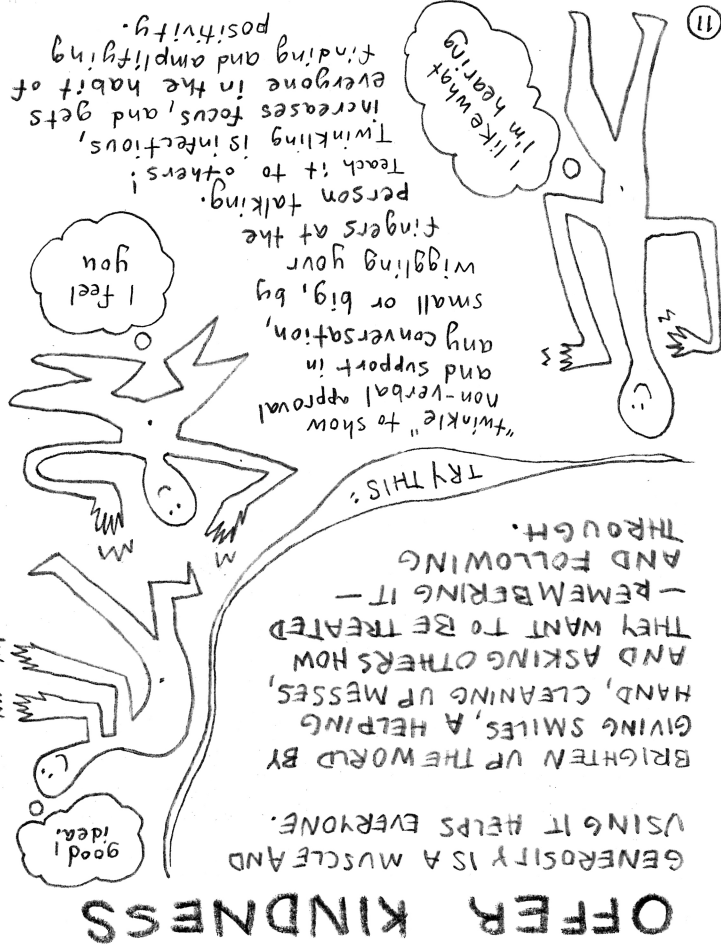 OFFER KINDNESS
GENEROSITY IS A MUSCLE AND
USING IT HELPS EVERYONE.
BRIGHTEN UP THE WORLD BY
GIVING SMILES, A HELPING
HAND, CLEANING UP MESSES,
AND ASKING OTHERS HOW
THEY WANT TO BE TREATED
– REMEMBERING IT –
AND FOLLOWING
THROUGH.
good
idea!
TRY THIS:
"twinkle" to show
non-verbal approval
and support in
any conversation,
small or big, by
wiggling your
fingers at the
person talking.
Teach it to others!
Twinkling is infectious,
increases focus, and gets
everyone in the habit of
finding and amplifying
positivity.
I feel
you
I like what
I'm hearing
11